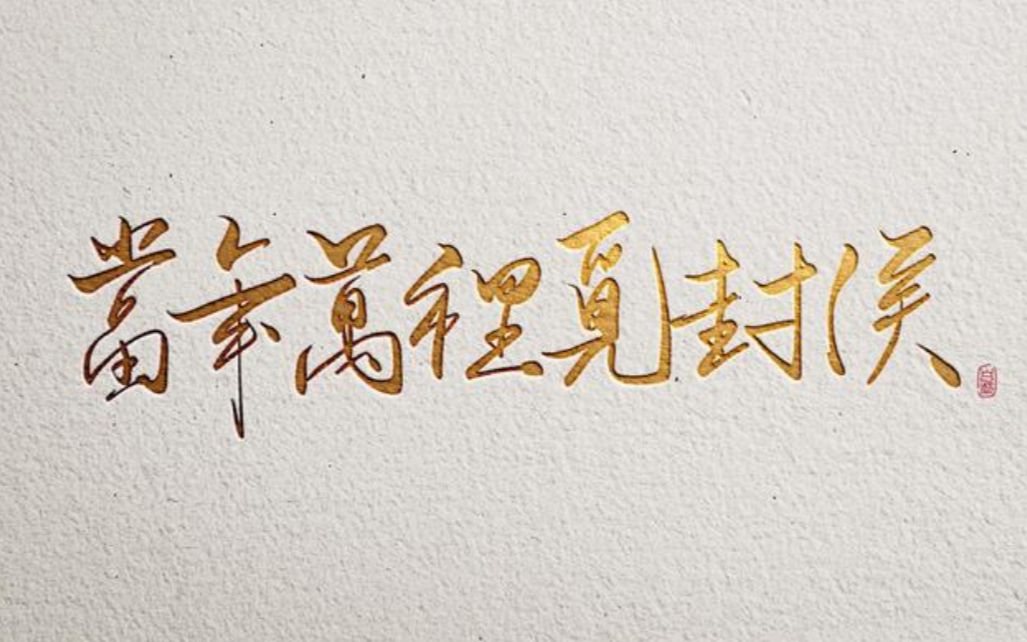 當年萬裡覓封侯